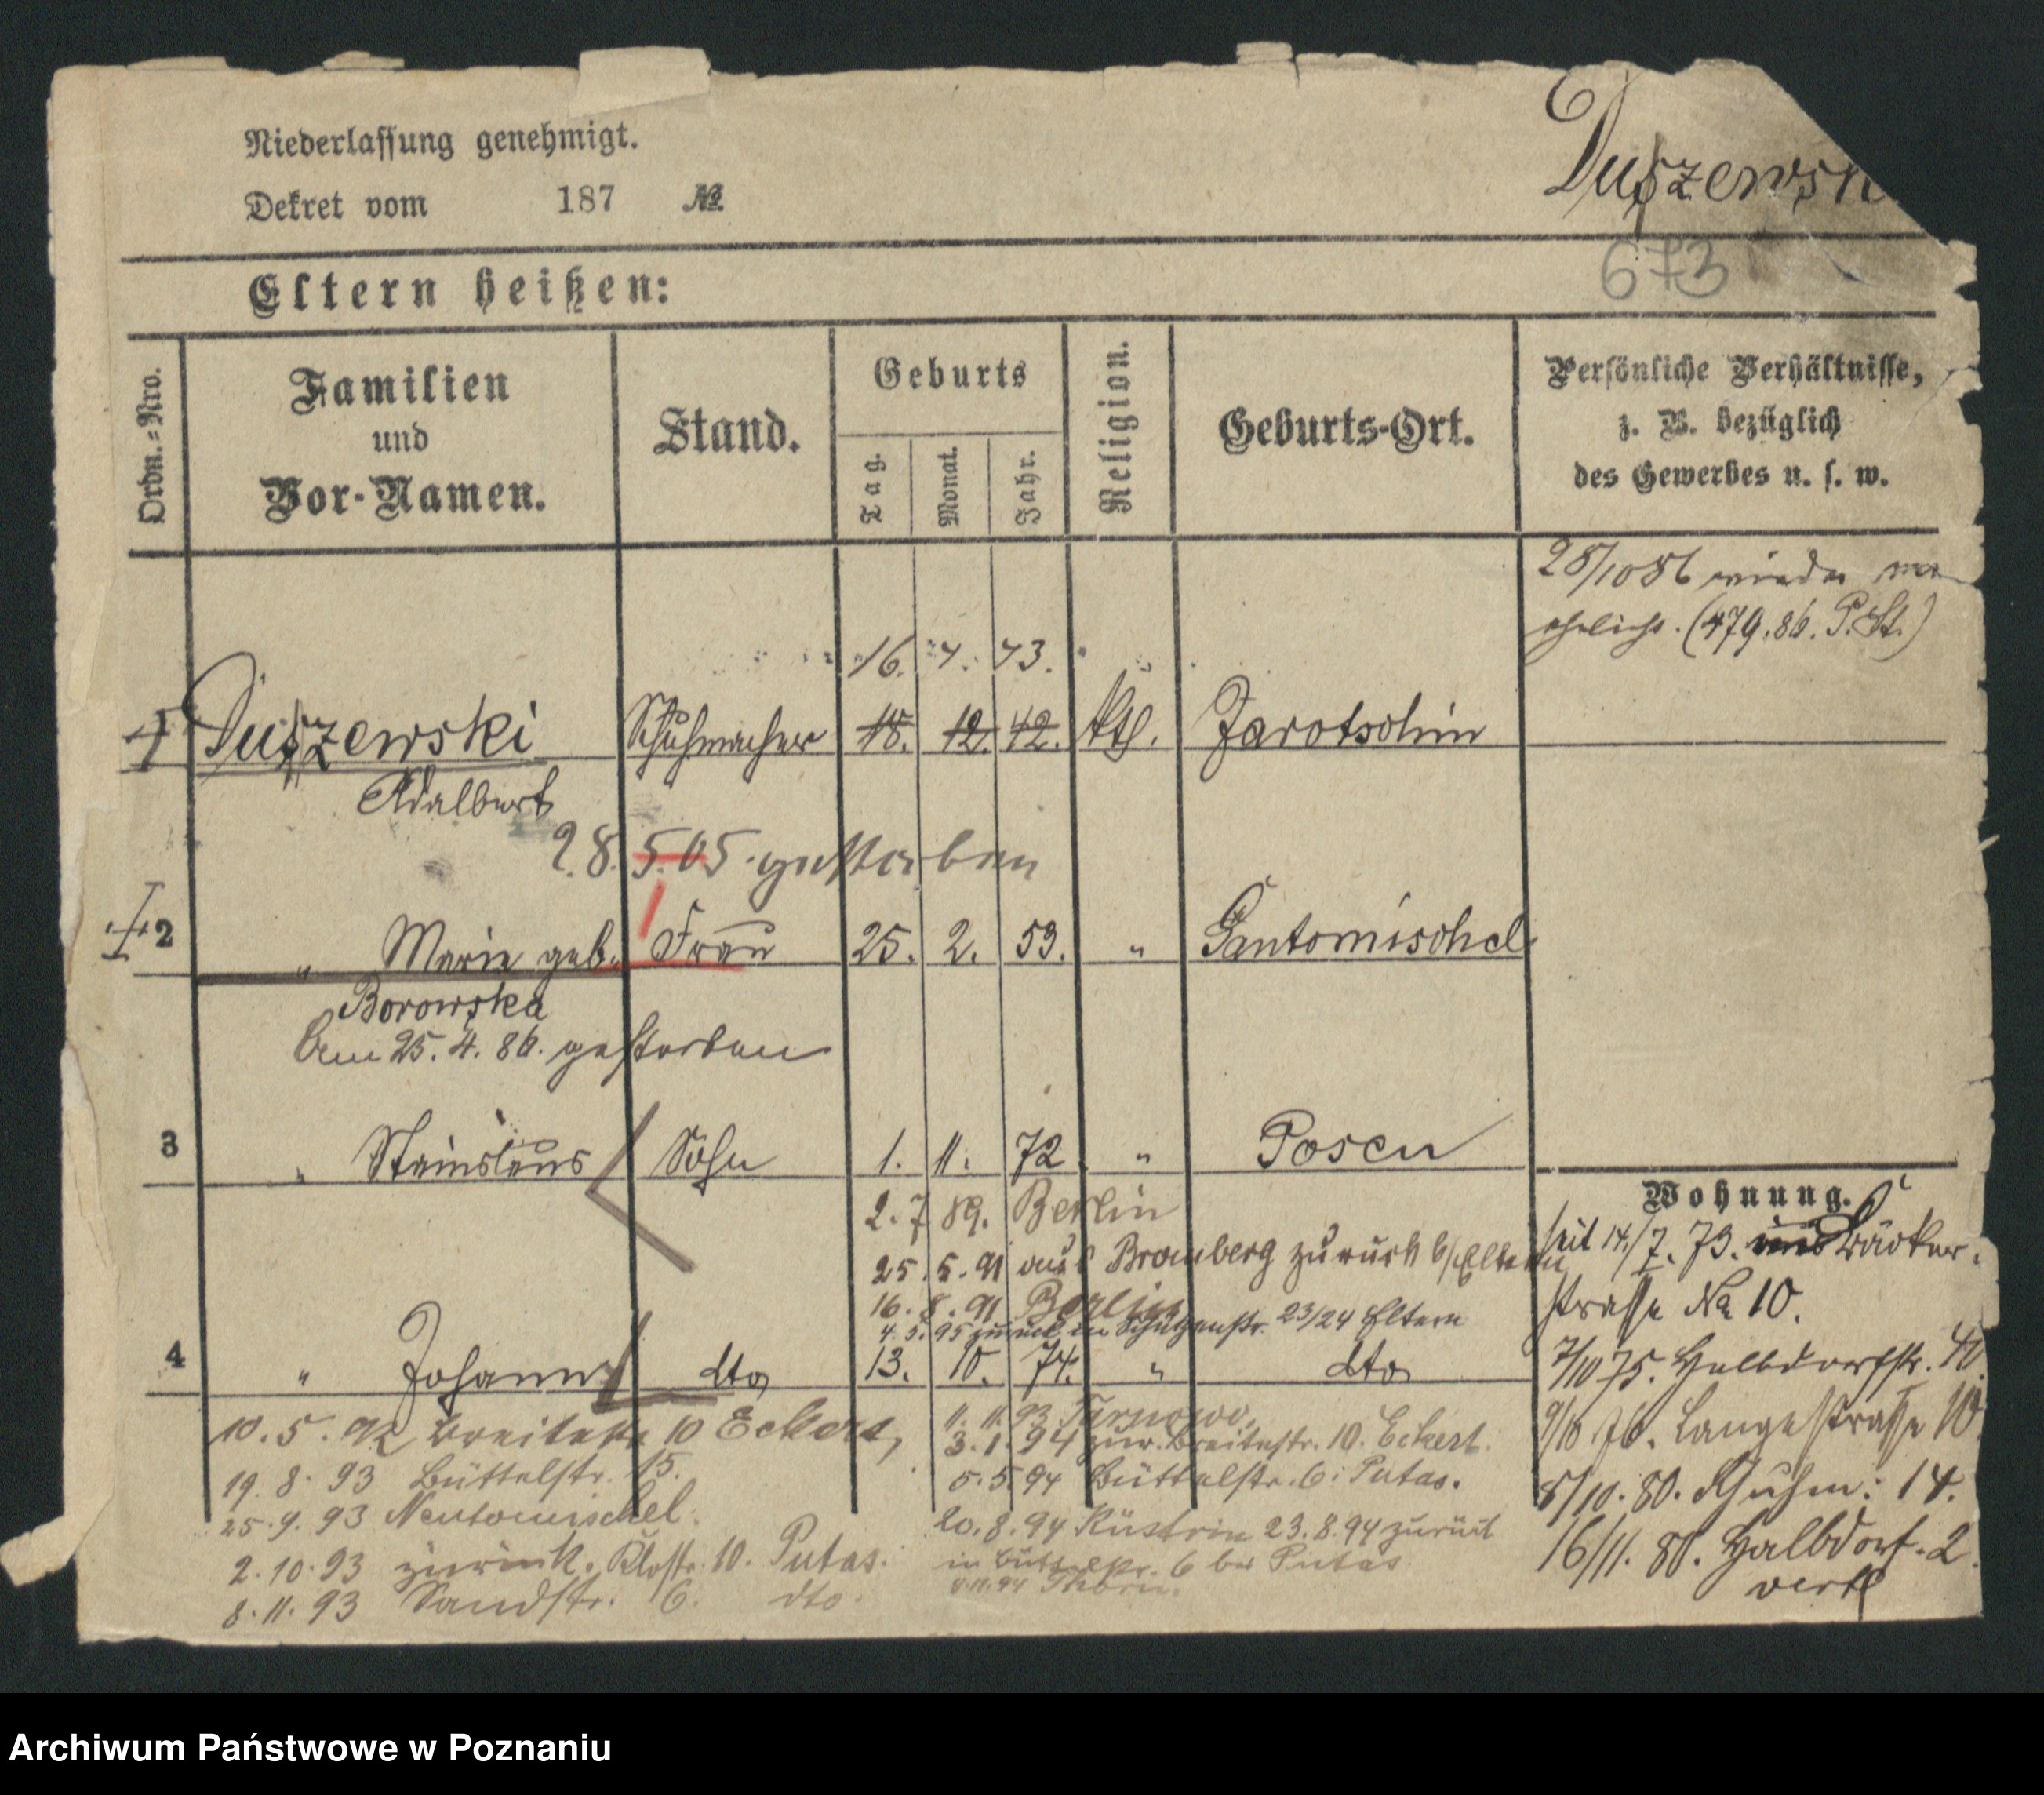 Niederlassung genehmigt.
Dekret vom 187 №
Duszewsk
673
Eltern heißen:
Ordn.=Nro.
Familien
und
Vor-Namen.
Stand.
Geburts
Tag.
Monat.
Jahr.
Religion.
Geburts-Ort.
Persönliche Verhältnisse,
z. B. bezüglich
des Gewerbes u. s. w.
28/10 86 wieder ver
ehelicht. (479.86. P. St.)
16. 4. 43.
1 Duszewski Schuhmacher 18. 12. 42. kth. Jarotschin
Adalbert
28. 5. 05 gestorben
2 " Marie geb. Frau 25. 2. 53. "
Borowska
Am 25. 4. 86. gestorben
3 " Stanislaus Sohn 1. 11. 72 " Posen
2. 7 89. Berlin
25. 5. 91 aus Bromberg zurück b/Eltern
16. 8. 91 Berlin
4. 5. 95 zurück in Schützenstr. 23/24 Eltern
4 " Johann dto 13. 10. 74. " dto
10. 5. 92 Breitestr 10 Eckert,
19. 8. 93 Büttelstr. 15.
25. 9. 93 Neutomischel.
2. 10. 93 zurück. Klostr. 10. Putas.
8. 11. 93 Sandstr. 6. dto.
11. 11. 93 Tarnowo.
3. 1. 94 zur. Breitestr. 10. Eckert.
5. 5. 94 Büttelstr. 6: Putas.
20. 8. 94 Küstrin 23. 8. 94 zurück
in Büttelstr. 6 bei Putas
11. 94 Thorn.
Wohnung.
seit 14/7. 73. Bäcker-
straße No 10.
7/10 75. Halbdorfstr.
9/10 76. Langestraße 10
8/10. 80. Schuhm: 14.
16/11. 80. Halbdorf. 2.
verte
Archiwum Państwowe w Poznaniu